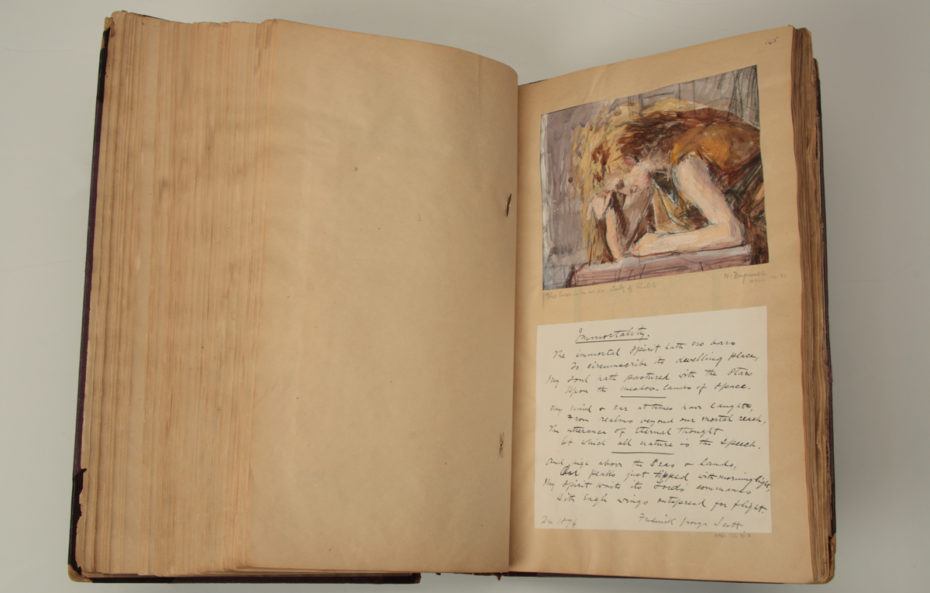 Immortality.
The immortal spirit hath no bars
To circumscribe its dwelling place,
My soul hath pastured with the stars
Upon the meadow lands of space.
My mind & ear at times have caught,
From realms beyond our mortal reach,
The utterance of Eternal thought
Of which all nature is the speech.
And high above the Seas & Lands,
On peaks just tipped with morning light,
My spirit waits its Lord's commands
With wings outspread for flight.
Frederick George Scott